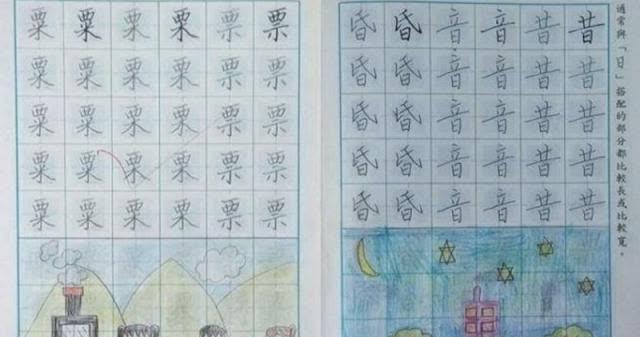 粟 粟 栗 栗 票 票
粟 粟 栗 栗 票 票
粟 粟 栗 栗 票 票
粟 粟 栗 栗 票 票
粟 粟 栗 栗 票 票
昏 昏 音 音 昔 昔
昏 昏 音 音 昔 昔
昏 昏 音 音 昔 昔
昏 昏 音 音 昔 昔
昏 昏 音 音 昔 昔
通常與「日」搭配的部分都比較長或比較寬。